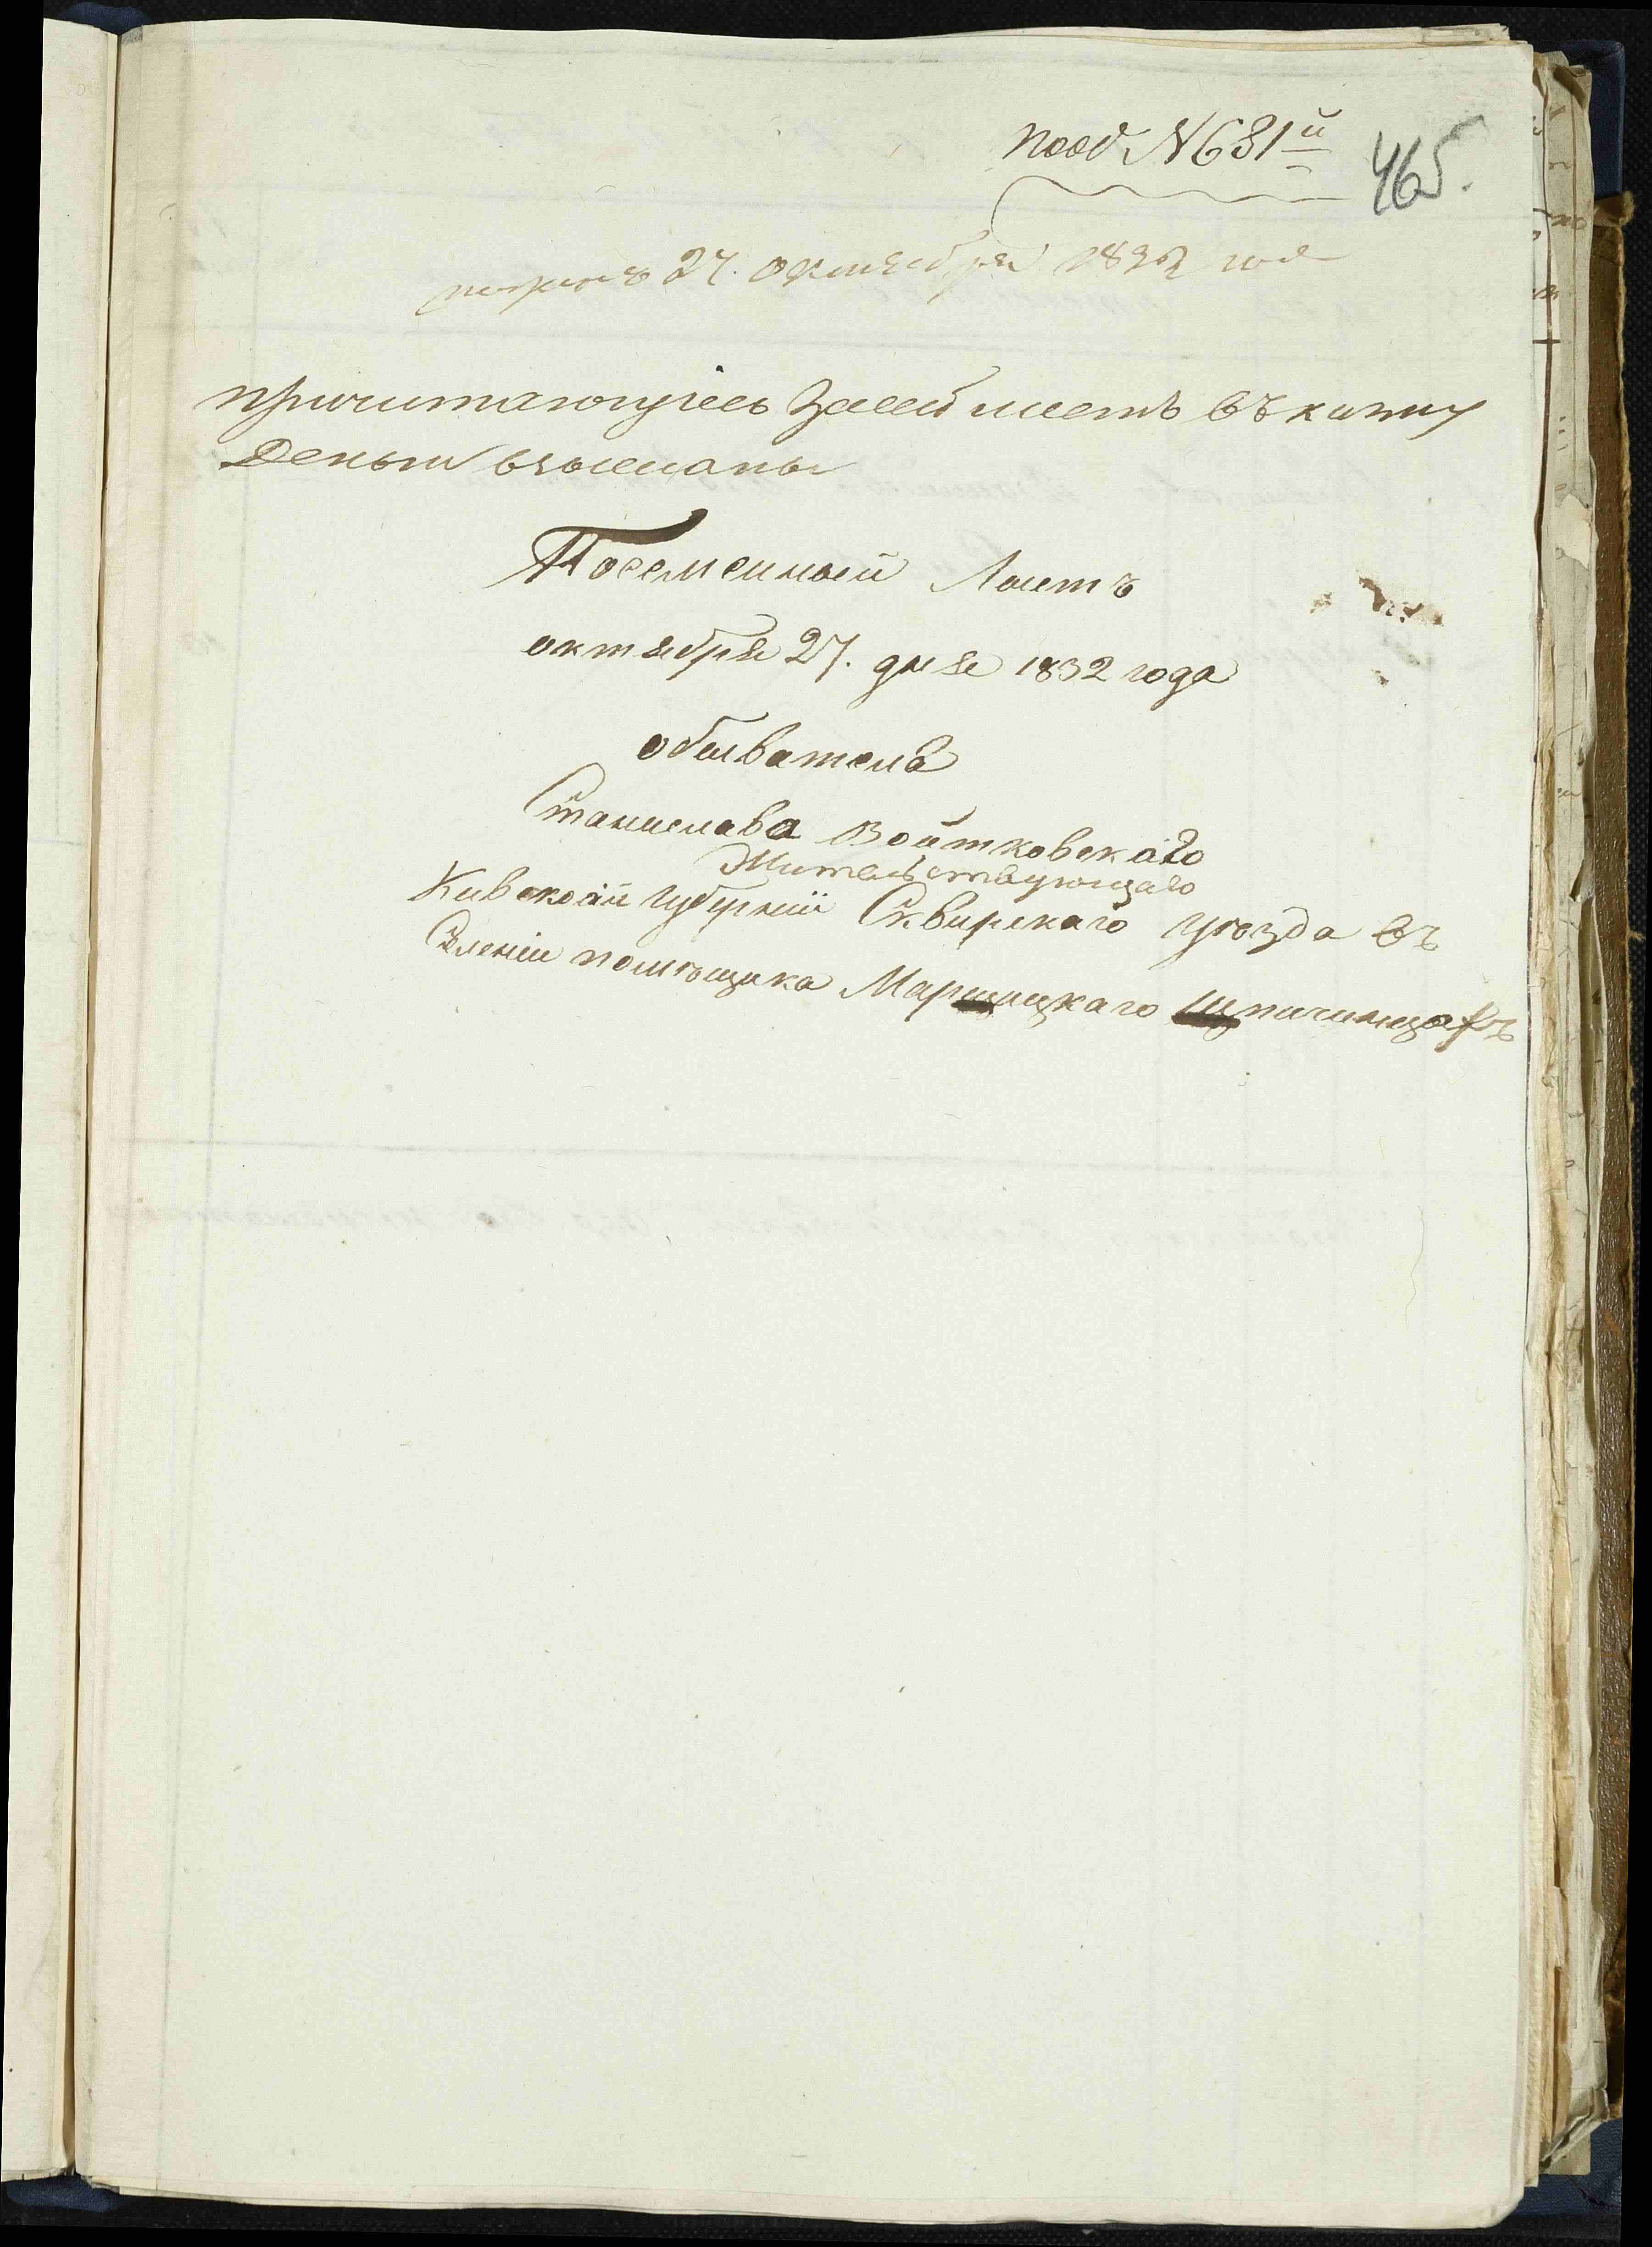 под N 631й
465.
27. октября 1832 года
причитающуiесь Засей листъ въ казну
Деньги взысканы
Посемейный Листъ
октября 27. дня 1832 года
обывателя
Станислава Войтковскаго
Жительствующаго
Кивской Губерніи Сквирскаго уѣзда въ
Селеніи помѣщика Марщицкаго Шпичинцахъ